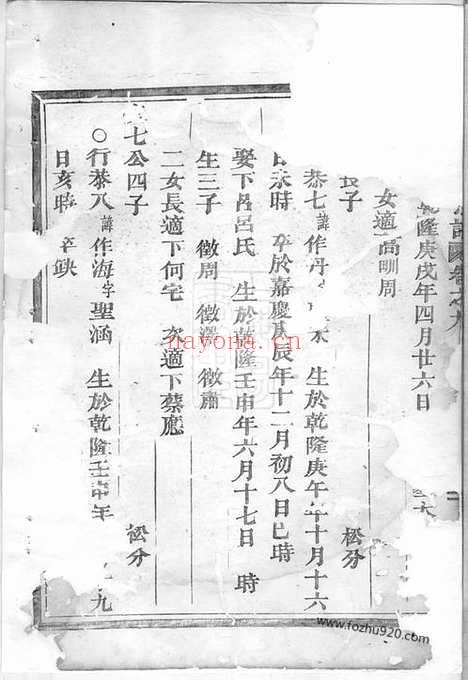 乾隆庚戌年四月廿六日
女適高嗣周
長子 松分
恭七諱作丹 生於乾隆庚午年十月十六
日未時 卒於嘉慶戊辰年十二月初八日巳時
娶下呂呂氏 生於乾隆壬申年六月十七日 時
生三子 徵周 徵澤 徵肅
二女長適下何宅 次適下蔡應
七公四子 松分
○行恭八諱作海字聖涵 生於乾隆壬申年 九
日亥時 卒缺
nayona.cn
www.fozhu920.com